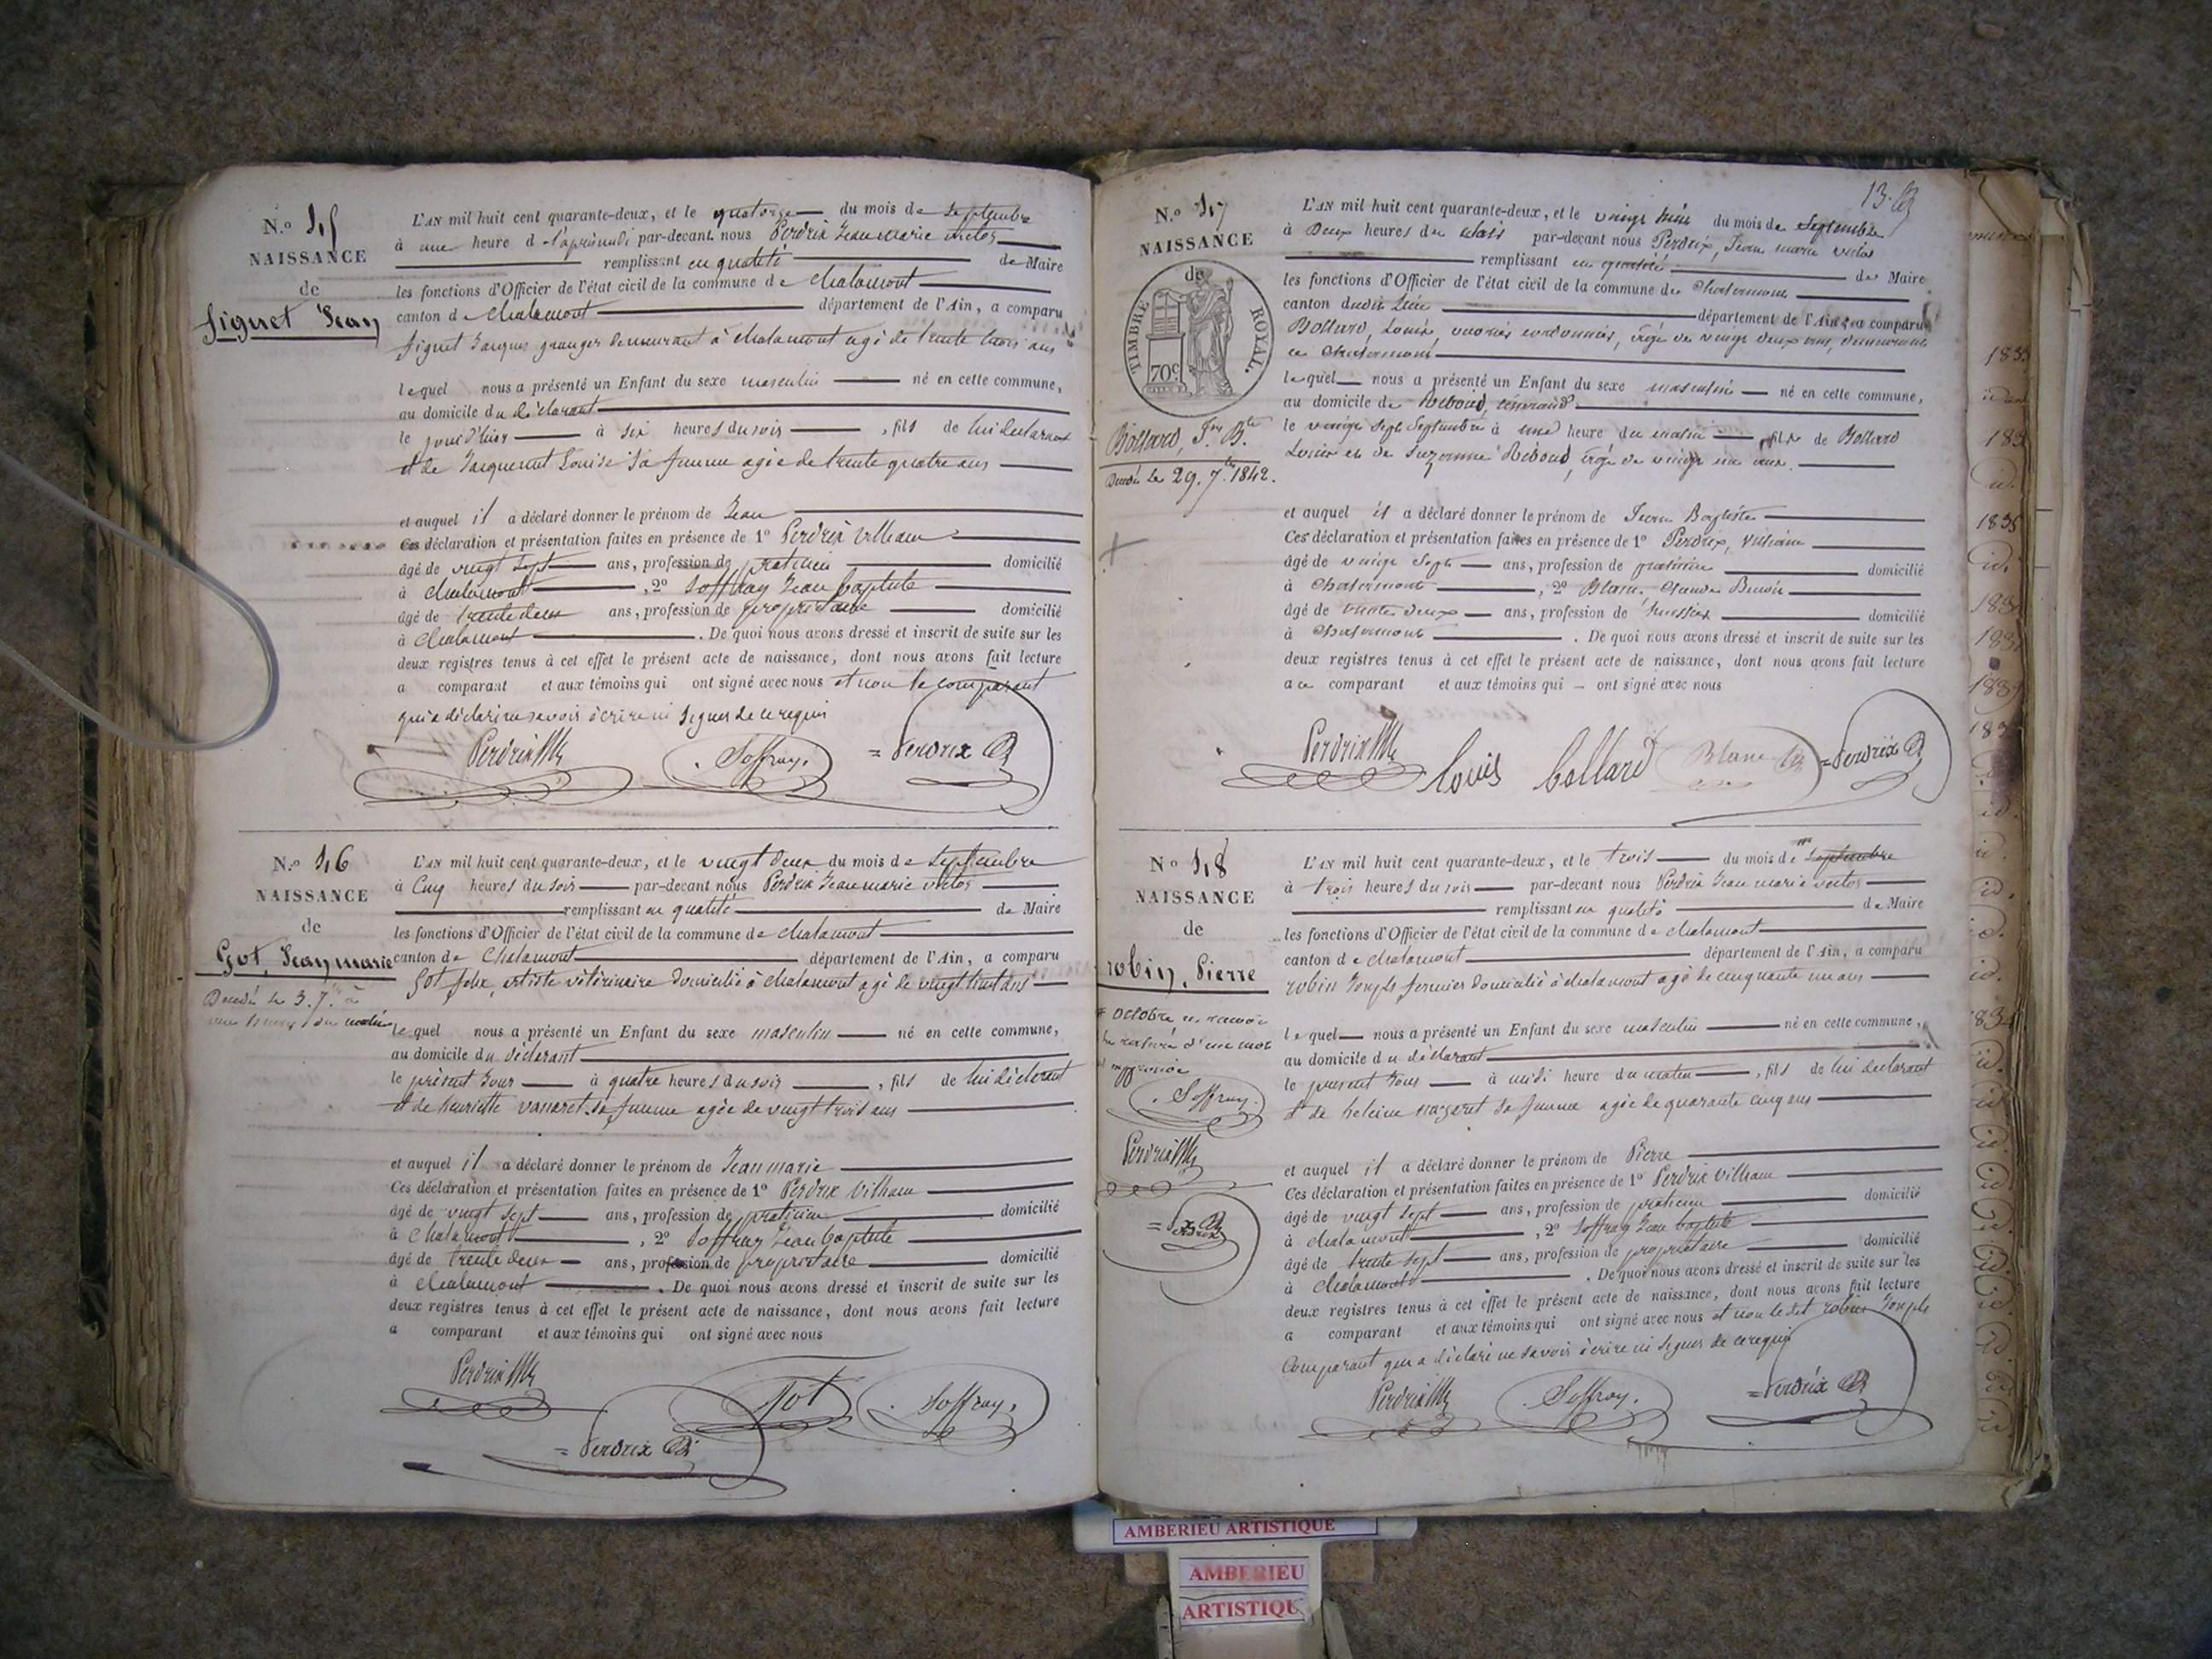 N.º 45
NAISSANCE
de
figuet Jean
L'AN mil huit cent quarante-deux, et le quatorze du mois de septembre
à une heure d l'après midi par-devant nous Perdrix Jean marie victor
remplissant en qualité de Maire
les fonctions d'Officier de l'état civil de la commune de chalamont
canton de chalamont département de l'Ain, a comparu
figuet Jacques granger demeurant à chalamont agé de trente trois ans
lequel nous a présenté un Enfant du sexe masculin né en cette commune,
au domicile du déclarant
le jour d'hier à six heures du soir, fils de lui declarant
et de Louise sa femme agée de trente quatre ans
et auquel il a déclaré donner le prénom de Jean
Ces déclaration et présentation faites en présence de 1º Perdrix vilham
âgé de vingt sept ans, profession de praticien domicilié
à chalamont, 2º Soffray Jean baptiste
âgé de trente deux ans, profession de propriétaire domicilié
à chalamont. De quoi nous avons dressé et inscrit de suite sur les
deux registres tenus à cet effet le présent acte de naissance, dont nous avons fait lecture
a comparant et aux témoins qui ont signé avec nous et non le comparant
qui a déclaré ne savoir écrire ni signer de ce requis
Perdrix Soffray. = Perdrix
N.º 46
NAISSANCE
de
Got, Jean marie
Décédé le 3. 7.bre à
du matin
L'AN mil huit cent quarante-deux, et le vingt deux du mois de septembre
à Cinq heures du soir par-devant nous Perdrix Jean marie victor
remplissant en qualité de Maire
les fonctions d'Officier de l'état civil de la commune de chalamont
canton de Chalamont département de l'Ain, a comparu
Got felix, artiste vétérinaire domicilié à chalamont agé de vingt huit ans
lequel nous a présenté un Enfant du sexe masculin né en cette commune,
au domicile du déclarant
le présent Jour à quatre heures du soir, fils de lui déclarant
et de henriette vanaret sa femme agée de vingt trois ans
et auquel il a déclaré donner le prénom de Jean marie
Ces déclaration et présentation faites en présence de 1º Perdrix Vilham
âgé de vingt sept ans, profession de praticien domicilié
à Chalamont, 2º Soffray Jean baptiste
âgé de trente deux ans, profession de propriétaire domicilié
à chalamont. De quoi nous avons dressé et inscrit de suite sur les
deux registres tenus à cet effet le présent acte de naissance, dont nous avons fait lecture
a comparant et aux témoins qui ont signé avec nous
Perdrix Got Soffray,
= Perdrix
13.
N.º 47
NAISSANCE
de
TIMBRE ROYAL.
70c
Bollard, J.n B.te
Décédé le 29. 7.bre 1842.
L'AN mil huit cent quarante-deux, et le vingt huit du mois de Septembre
à Deux heures du soir par-devant nous Perdrix, Jean marie victor
remplissant en qualité de Maire
les fonctions d'Officier de l'état civil de la commune de Chalamont
canton dudit lieu département de l'Ain, a comparu
Bollard, Louis, ouvrier cordonnier, âgé de vingt deux ans, demeurant
à Chalamont
lequel nous a présenté un Enfant du sexe masculin né en cette commune,
au domicile de Reboud,
le vingt sept Septembre à une heure du matin, fils de Bollard
Louis et de Suzanne Reboud, âgée de vingt un ans.
et auquel il a déclaré donner le prénom de Jean Baptiste
Ces déclaration et présentation faites en présence de 1º Perdrix, Vilham
âgé de vingt sept ans, profession de praticien domicilié
à Chalamont, 2º Blanc, Claude Benoit
âgé de trente deux ans, profession de huissier domicilié
à Chalamont. De quoi nous avons dressé et inscrit de suite sur les
deux registres tenus à cet effet le présent acte de naissance, dont nous avons fait lecture
au comparant et aux témoins qui ont signé avec nous
Perdrix Louis bollard Blanc = Perdrix
N.º 48
NAISSANCE
de
robin, Pierre
octobre
d'un mot
Soffray.
Perdrix
= Perdrix
L'AN mil huit cent quarante-deux, et le trois du mois de septembre
à trois heures du soir par-devant nous Perdrix Jean marie victor
remplissant en qualité de Maire
les fonctions d'Officier de l'état civil de la commune de chalamont
canton de chalamont département de l'Ain, a comparu
robin Joseph fermier domicilié à chalamont agé de cinquante un ans
lequel nous a présenté un Enfant du sexe masculin né en cette commune,
au domicile du déclarant
le présent Jour à midi heure du matin, fils de lui declarant
et de heleine sa femme agée de quarante cinq ans
et auquel il a déclaré donner le prénom de Pierre
Ces déclaration et présentation faites en présence de 1º Perdrix Vilham
âgé de vingt sept ans, profession de praticien domicilié
à chalamont, 2º Soffray Jean baptiste
âgé de trente sept ans, profession de propriétaire domicilié
à Chalamont. De quoi nous avons dressé et inscrit de suite sur les
deux registres tenus à cet effet le présent acte de naissance, dont nous avons fait lecture
a comparant et aux témoins qui ont signé avec nous et non le dit robin Joseph
Comparant qui a déclaré ne savoir écrire ni signer de ce requis
Perdrix Soffray. = Perdrix
AMBERIEU ARTISTIQUE
AMBERIEU
ARTISTIQUE